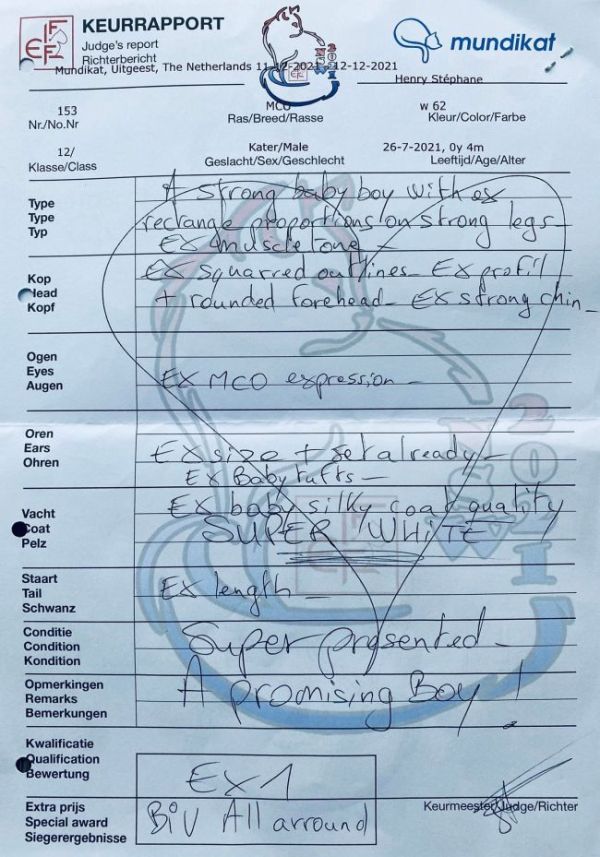 FIFE
KEURRAPPORT
Judge's report
Richterbericht
mundikat
Mundikat, Uitgeest, The Netherlands 11-12-2021 - 12-12-2021
Henry Stéphane
153
MCO
w 62
Nr./No.Nr
Ras/Breed/Rasse
Kleur/Color/Farbe
12/
Kater/Male
26-7-2021, 0y 4m
Klasse/Class
Geslacht/Sex/Geschlecht
Leeftijd/Age/Alter
Type
Type
Typ
A strong baby boy with ex
rectrange proportions on strong legs -
Ex muscle tone -
Kop
Head
Kopf
Ex squarred outlines - Ex profil
+ rounded forehead - Ex strong chin -
Ogen
Eyes
Augen
Ex MCO expression -
Oren
Ears
Ohren
Ex size + set already -
Ex Baby tufts -
Vacht
Coat
Pelz
Ex baby silky coat quality
SUPER WHITE
Staart
Tail
Schwanz
Ex length -
Conditie
Condition
Kondition
Super presented -
Opmerkingen
Remarks
Bemerkungen
A promising Boy !
Kwalificatie
Qualification
Bewertung
Ex 1
Keurmeester/Judge/Richter
Extra prijs
Special award
Siegerergebnisse
BIV All arround
NSW
2021